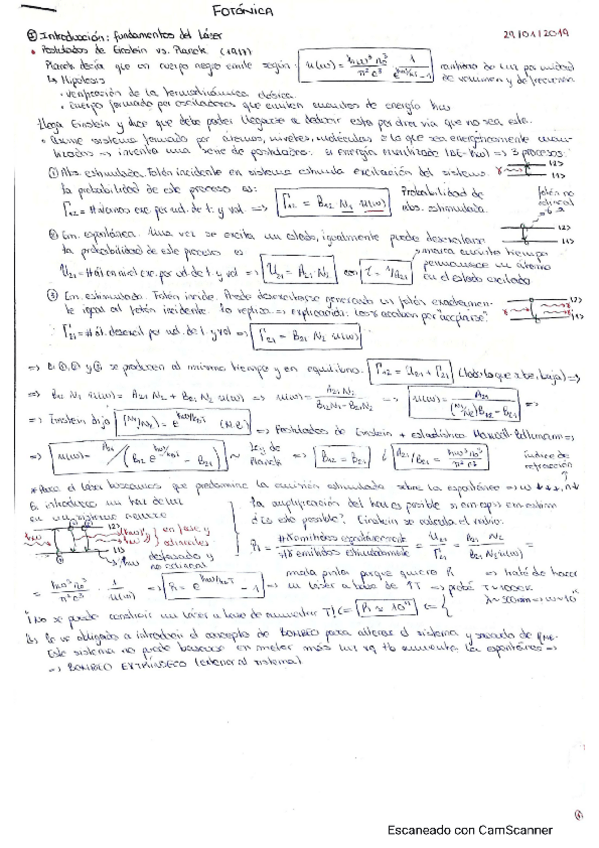 FOTÓNICA
① Introducción: fundamentos del láser 29/01/2019
• Postulados de Einstein vs. Planck (1917)
Planck decía que un cuerpo negro emite según: u(ω) = ħω³n₀³/π²c³ · 1/(e^(ħω/k_BT) - 1) por unidad
↳ Hipótesis de volumen y de frecuencia
· Verificación de la termodinámica clásica.
· Cuerpo formado por osciladores que emiten cuantos de energía ħω
Llega Einstein y dice que debe poder llegarse a deducir esto por otra vía que no sea esta.
• Asume sistema formado por átomos, niveles, moléculas o lo que sea energéticamente
→ inventa una serie de postulados: si energía cuantizada (ΔE = ħω) => 3 procesos
① Abs. estimulada. Fotón incidente en sistema estimula excitación del sistema. |2> |1>
la probabilidad de este proceso es: Probabilidad de fotón no
Γ₁₂ = # átomos exc. por ud. de t. y vol => Γ₁₂ = B₁₂ N₁ u(ω) abs. estimulada.
② Em. espontánea. Una vez se excita un estado, igualmente puede desexcitarse |2> |1>
la probabilidad de este proceso es marca cuánto tiempo
U₂₁ = # át en nivel exc. por ud de t. y vol => U₂₁ = A₂₁ N₂ con τ = 1/A₂₁ permanece un átomo
en el estado excitado
③ Em. estimulada. Fotón incide. Puede desexcitarse generando un fotón exactamen- |2>
te igual al fotón incidente. Lo replica => explicación: los 2 acaban por "acoplarse" |1>
Γ₂₁ = # át. desexcit por ud. de t. y vol => Γ₂₁ = B₂₁ N₂ u(ω)
=> ①, ② y ③ se producen al mismo tiempo y en equilibrio. Γ₁₂ = U₂₁ + Γ₂₁ (todo lo que sube, baja) =>
=> B₁₂ N₁ u(ω) = A₂₁ N₂ + B₂₁ N₂ u(ω) => u(ω) = A₂₁N₂/(B₁₂N₁ - B₂₁N₂) => u(ω) = A₂₁/((N₁/N₂)B₁₂ - B₂₁) =>
=> Einstein dijo (N₁/N₂) = e^(ħω/k_BT) => Postulados de Einstein + estadística Maxwell-Boltzmann =>
=> u(ω) = A₂₁/(B₁₂ e^(ħω/k_BT) - B₂₁) ~ Ley de Planck => B₁₂ = B₂₁ y A₂₁/B₂₁ = ħω³n₀³/π²c³ índice de
refracción
* Para el láser buscamos que predomine la emisión estimulada sobre la espontánea => ω↓↓↓, n↓
Se introduce un haz de luz La amplificación del haz es posible
en un sistema ¿Es esto posible? Einstein se calcula el ratio:
|2> en fase y R = # fotones emitidos espontáneamente / # fotones emitidos estimuladamente = U₂₁/Γ₂₁ = A₂₁ N₂/B₂₁ N₂ u(ω) =
|1> desfasado y
no estimul
= ħω³n₀³/π²c³ · 1/u(ω) => R = e^(ħω/k_BT) - 1 => mala pinta porque quiero R => habré de hacer
un láser a base de ↑T => probé T ~ 1000K
No se puede construir un láser a base de aumentar T
↳ Se ve obligado a introducir el concepto de BOMBEO para alterar el sistema y sacarlo de
Este sistema no puede basarse en meter más luz xq tb aumenta la espontánea =>
=> BOMBEO EXTRÍNSECO (exterior al sistema)
Escaneado con CamScanner